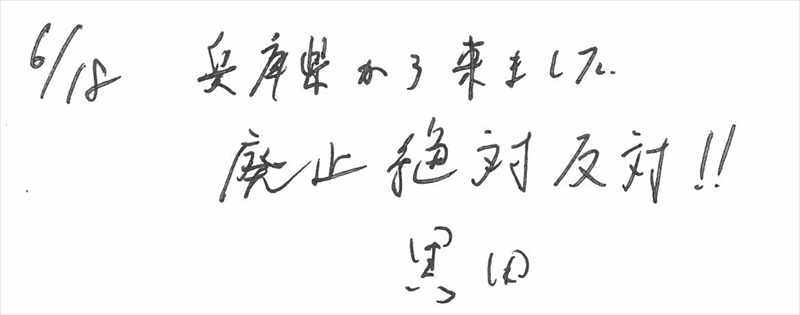 6/18 兵庫県から来ました
廃止絶対反対!!
黒田